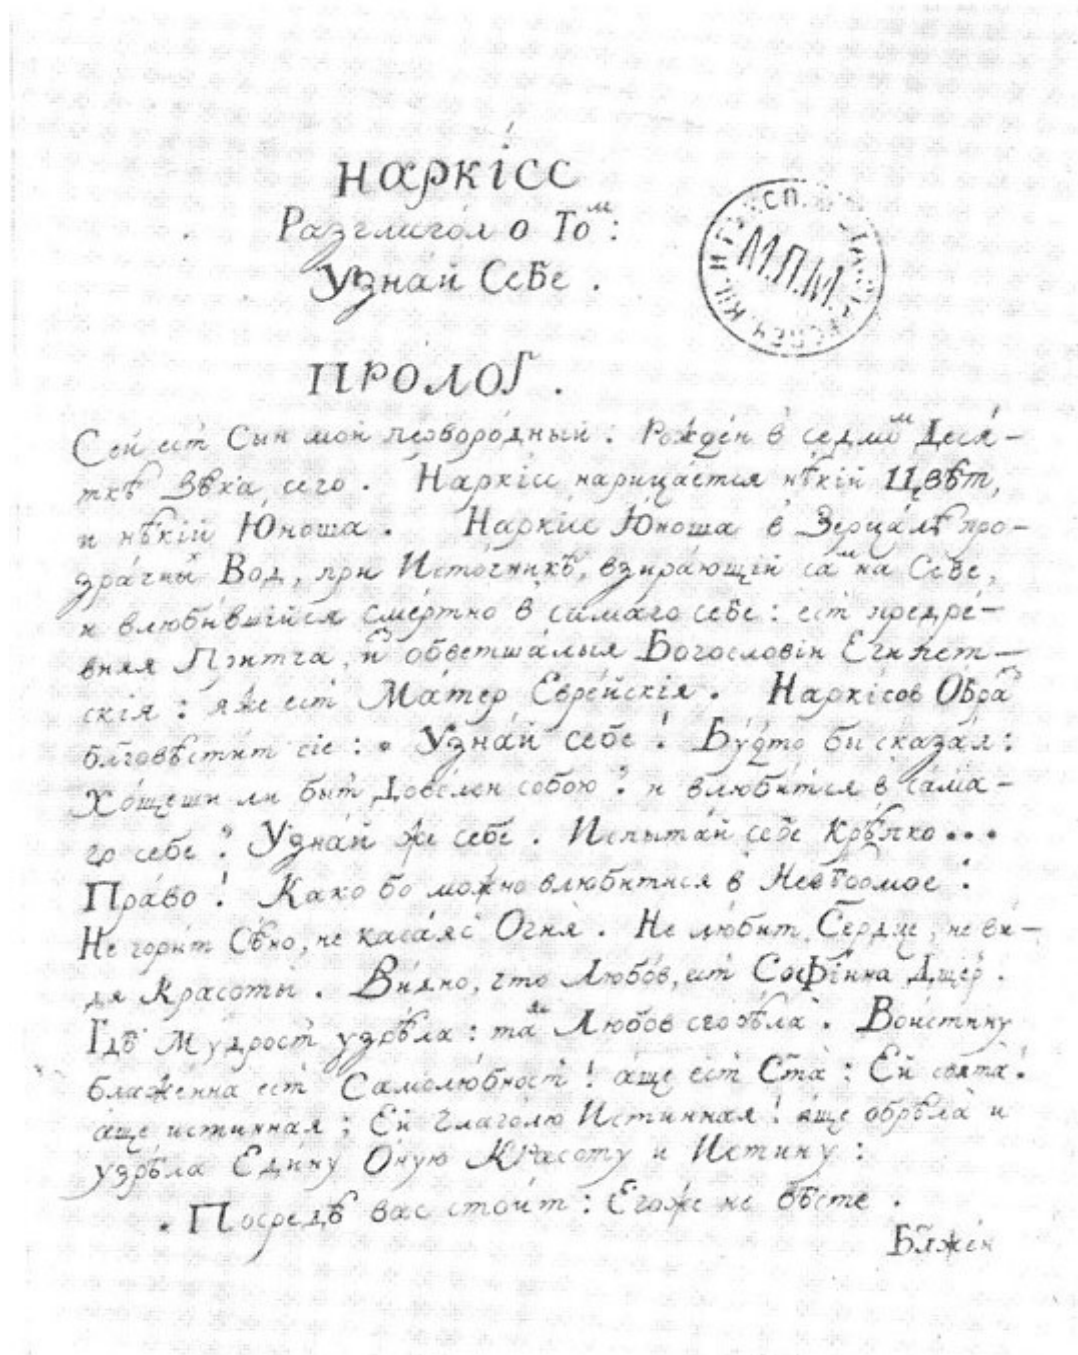 Наркíсс
Разглагóл о То м:
Узнай Себе.
М.П.М.
ПРОЛОГ.
Сей ест Сын мой первородный. Рождéн в седмо м Деся-
ткѣ Вѣка сего. Наркíсс нарицáется нѣкій Цвѣт,
и нѣкій Юноша. Наркíсс Юноша в Зерцáлѣ про-
зрáчных Вод, при Истóчникѣ, взирáющій са м на Себе,
и влюбившійся смéртно в самаго себе: ест предрé-
вняя Притча, из обветшáлыя Богословіи Египет-
скія: яже ест Мáтер Еврéйскія. Наркíсов Обра з
блговѣстит сіе: Узнáй себе! Бýдто би сказал:
Хóщеши ли быт Довóлен собою? и влюбитися в сама-
го себе? Узнáй же себе. Испытáй себе крѣпко...
Прáво! Како бо можно влюбитися в Невѣдомое?
Не горит Сѣно, не касáяс Огня. Не любит Сердце, не ви-
дя Красоты. Видно, что Любóв, ест Софíйна Дщер.
Гдѣ Мудрост узрѣла: та м Любов сгорѣла. Воистину
блажéнна ест Самолюбност! áще ест Стá: Ей свята!
áще истинная; Ей глагóлю Истинная! áще обрѣлá и
узрѣла Едину Оную Красоту и Истину:
Посредѣ вас стоит: Егоже не вѣсте.
Блжéн